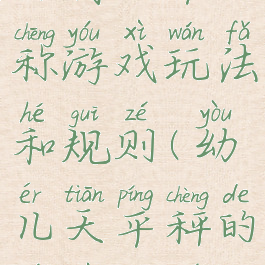 chēng yóu xì wán fǎ
称游戏玩法
hé guī zé yòu
和规则(幼
ér tiān píng chèng de
儿天平秤的